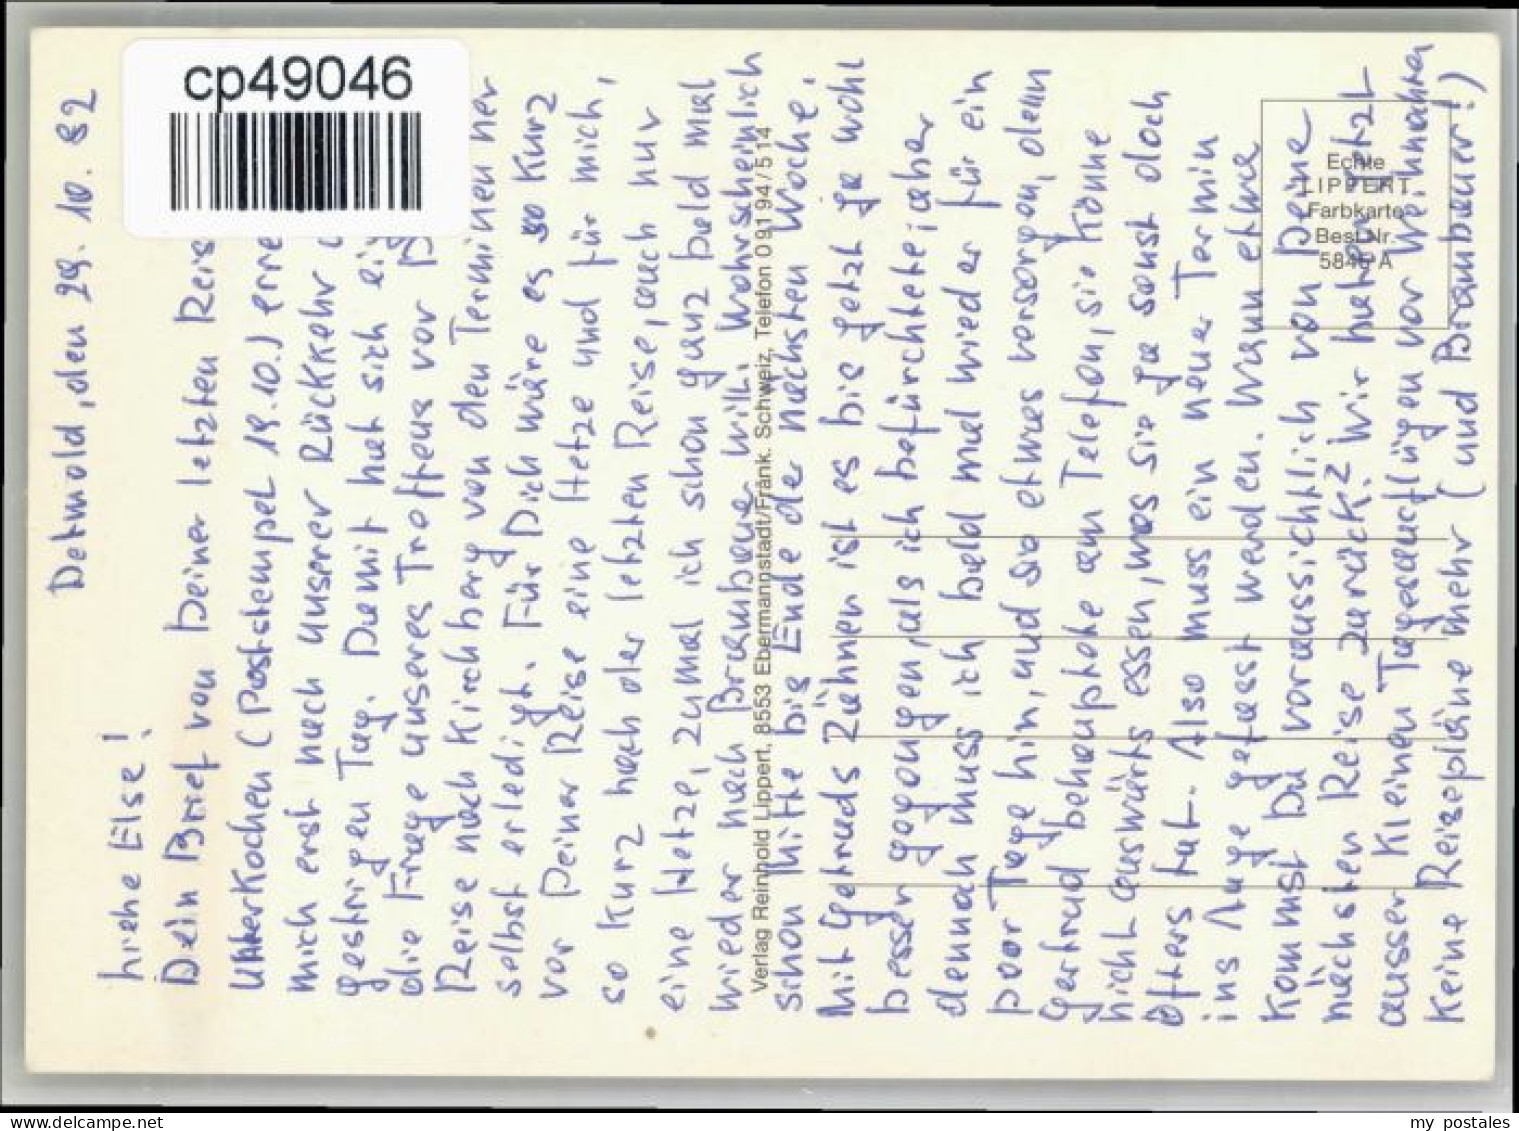 cp49046
Detmold, den 29. 10. 82
Liebe Else!
Dein Brief von Deiner letzten Reis
Unterkochen (Poststempel 19.10.) erre
mich erst nach unserer Rückkehr
gestrigen Tag. Damit hat sich ei
die Frage unseres Treffens vor
Reise nach Kirchberg von den Terminen her
selbst erledigt. Für Dich wäre es so kurz
vor Deiner Reise eine Hetze und für mich,
so kurz nach der letzten Reise, auch nur
eine Hetze, zumal ich schon ganz bald mal
wieder nach Brambaue will, wahrscheinlich
schon Mitte bis Ende der nächsten Woche.
Mit Gertruds Zähnen ist es bis jetzt ja wohl
besser gegangen, als ich befürchtete, aber
dennoch muss ich bald mal wieder für ein
paar Tage hin, und sie etwas versorgen, denn
Gertrud behauptete am Telefon, sie könne
nicht auswärts essen, was sie ja sonst doch
öfters tat. Also muss ein neuer Termin
ins Auge gefasst werden. Wann etwa
kommst Du voraussichtlich von Deine
nächsten Reise zurück? Wir haben jetzt
ausser kleinen Tagesausflügen vor Weihnachten
keine Reisepläne mehr (und Brambauer!)
Verlag Reinhold Lippert, 8553 Ebermannstadt/Fränk. Schweiz, Telefon 0 91 94 / 5 14
Echte
LIPPERT
Farbkarte
Best.Nr.
5846 A
my postales